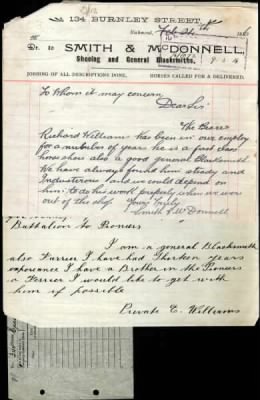 134 BURNLEY STREET,
Richmond, Feb 24th
Dr. to SMITH & McDONNELL,
Shoeing and General Blacksmiths.
JOBBING OF ALL DESCRIPTIONS DONE. HORSES CALLED FOR & DELIVERED.
To Whom it may concern
Dear Sir
The Bearer
Richard William has been in our employ
for a number of years he is a first Class
horse shoer also a good general Blacksmith
We have always found him steady and
Industerous and we could depend on
him to do his work properly when we wor
out of the shop
Yours Truly
Smith & McDonnell
Battalion to Pioneers
I am a general Blacksmith
also Farrier I have had Thirteen years
experiance I have a Brother in the Pioneers
a Ferrier I would like to get with
him if possible
Private E. Williams